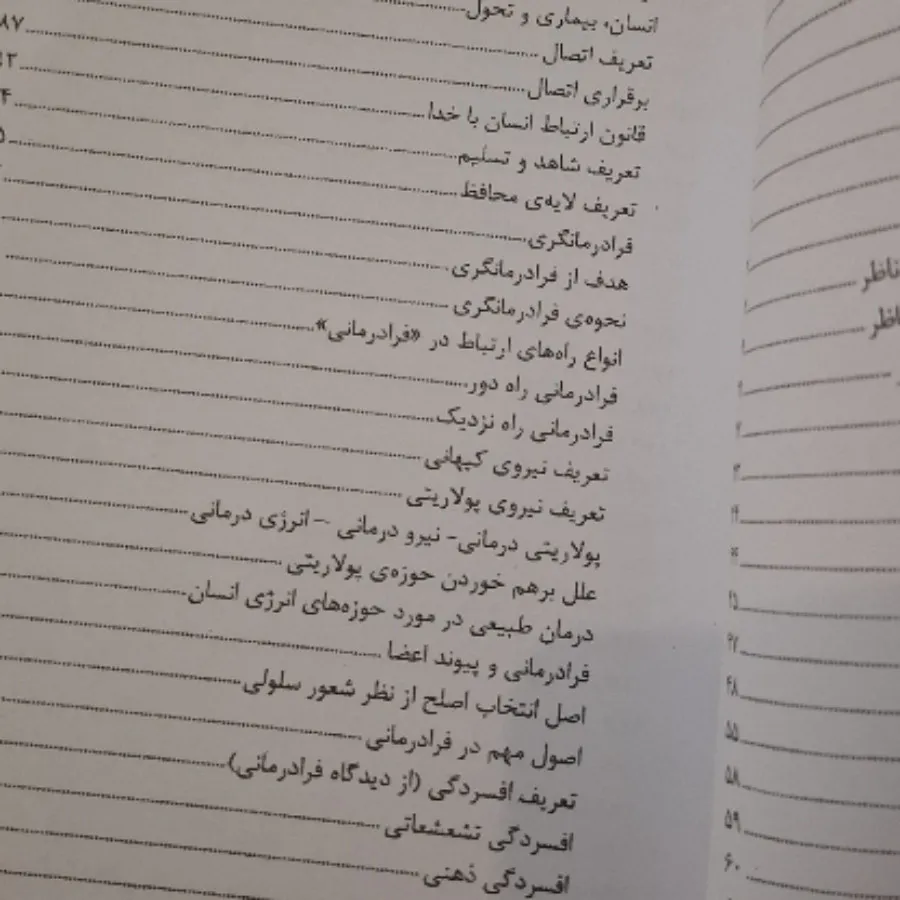 انسان، بیماری و تحول
تعریف اتصال
برقراری اتصال ۸۷
قانون ارتباط انسان با خدا
تعریف شاهد و تسلیم
تعریف لایه‌ی محافظ
فرادرمانگری
هدف از فرادرمانگری
نحوه‌ی فرادرمانگری
انواع راه‌های ارتباط در «فرادرمانی»
فرادرمانی راه دور
فرادرمانی راه نزدیک
تعریف نیروی کیهانی
تعریف نیروی پولاریتی
پولاریتی درمانی- نیرو درمانی – انرژی درمانی
علل برهم خوردن حوزه‌ی پولاریتی
درمان طبیعی در مورد حوزه‌های انرژی انسان
فرادرمانی و پیوند اعضا
اصل انتخاب اصلح از نظر شعور سلولی
اصول مهم در فرادرمانی
تعریف افسردگی (از دیدگاه فرادرمانی)
افسردگی تشعشعاتی
افسردگی ذهنی
ناظر
ناظر
۴۸
۵۵
۵۸
۵۹
۶۰